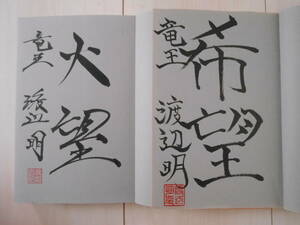 希望
竜王 渡辺明
竜王 渡辺明